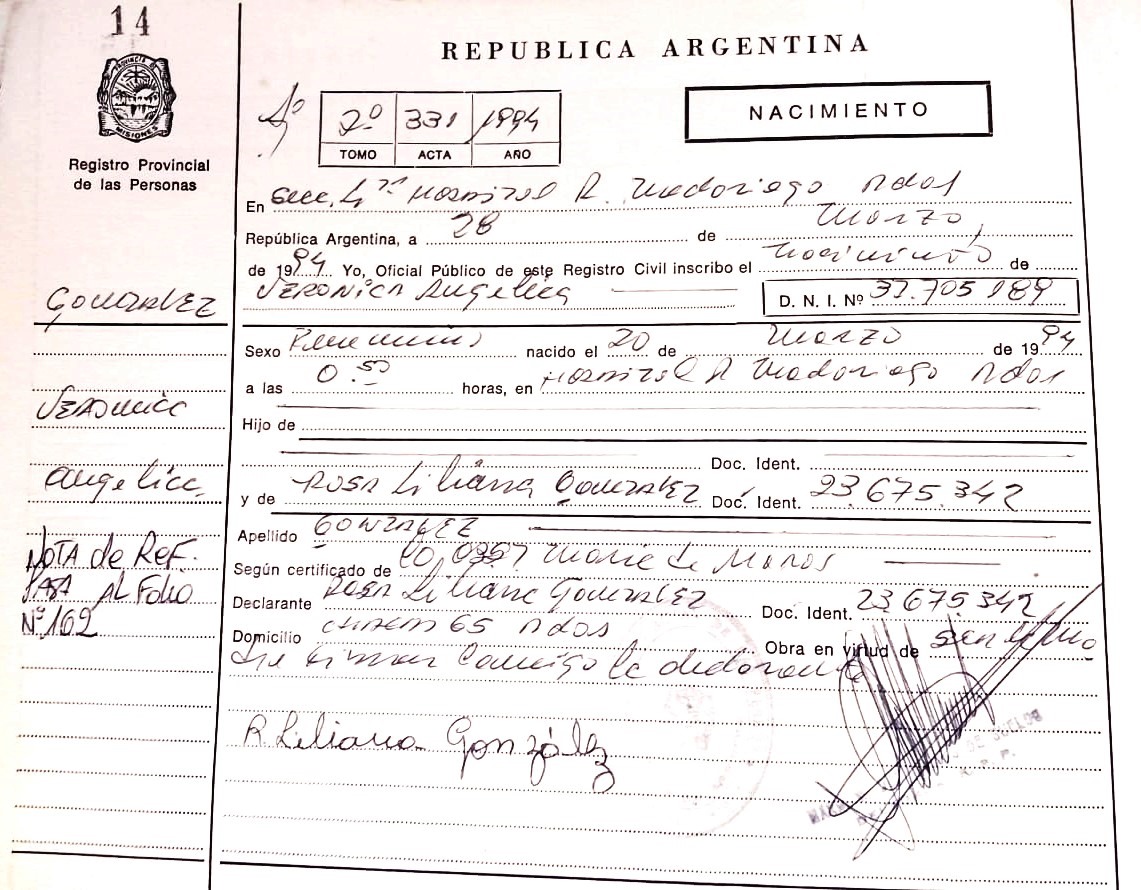 14
REPUBLICA ARGENTINA
PROVINCIA DE MISIONES
Registro Provincial
de las Personas
2º 331 1994
TOMO ACTA AÑO
NACIMIENTO
En Secc. 4ta Hospital R. Madariaga Pdas
República Argentina, a 28 de Marzo,
de 1994 Yo, Oficial Público de este Registro Civil inscribo el nacimiento de
VERONICA Angelica
D. N. I. Nº 37.705 189
GONZALEZ
Sexo Femenino nacido el 20 de Marzo de 1994
a las 0.50 horas, en Hospital R Madariaga Pdas
VERONICA
Hijo de
Doc. Ident.
Angelica
y de ROSA Liliana GONZALEZ Doc. Ident. 23.675.342
Apellido GONZALEZ
NOTA de REF.
Según certificado de
PASA AL Folio
Declarante Rosa Liliana GONZALEZ Doc. Ident. 23 675 342
Nº 162
Domicilio 65 Pdas Obra en virtud de
firman conmigo la declarante
R. Liliana González